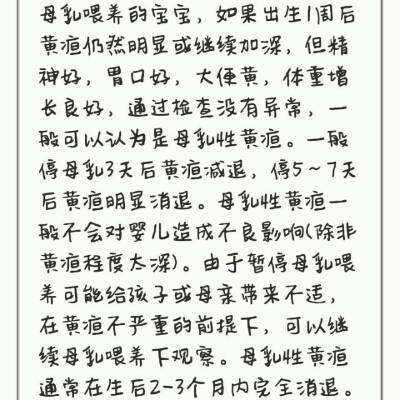 母乳喂养的宝宝，如果出生1周后
黄疸仍然明显或继续加深，但精
神好，胃口好，大便黄，体重增
长良好，通过检查没有异常，一
般可以认为是母乳性黄疸。一般
停母乳3天后黄疸减退，停5~7天
后黄疸明显消退。母乳性黄疸一
般不会对婴儿造成不良影响(除非
黄疸程度太深)。由于暂停母乳喂
养可能给孩子或母亲带来不适，
在黄疸不严重的前提下，可以继
续母乳喂养下观察。母乳性黄疸
通常在生后2-3个月内完全消退。